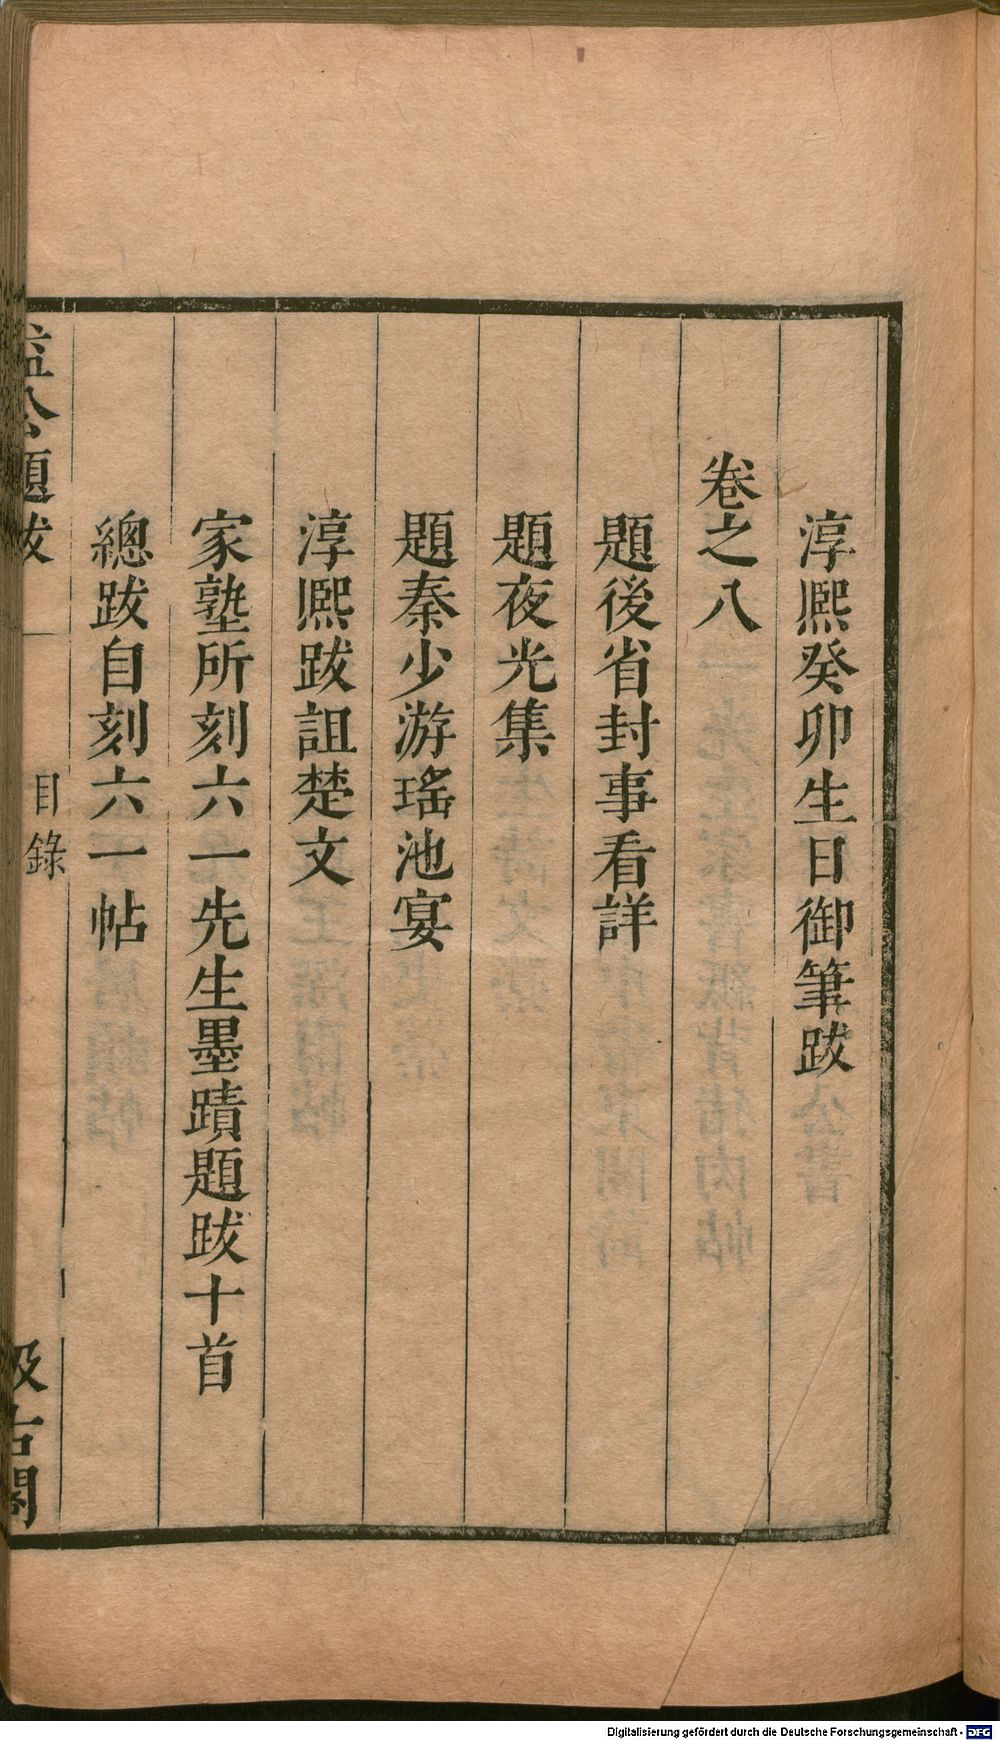 淳熙癸卯生日御筆跋
卷之八
題後省封事看詳
題夜光集
題秦少游瑤池宴
淳熙跋詛楚文
家塾所刻六一先生墨蹟題跋十首
總跋自刻六一帖
益公題跋
目錄
汲古閣
Digitalisierung gefördert durch die Deutsche Forschungsgemeinschaft - DFG